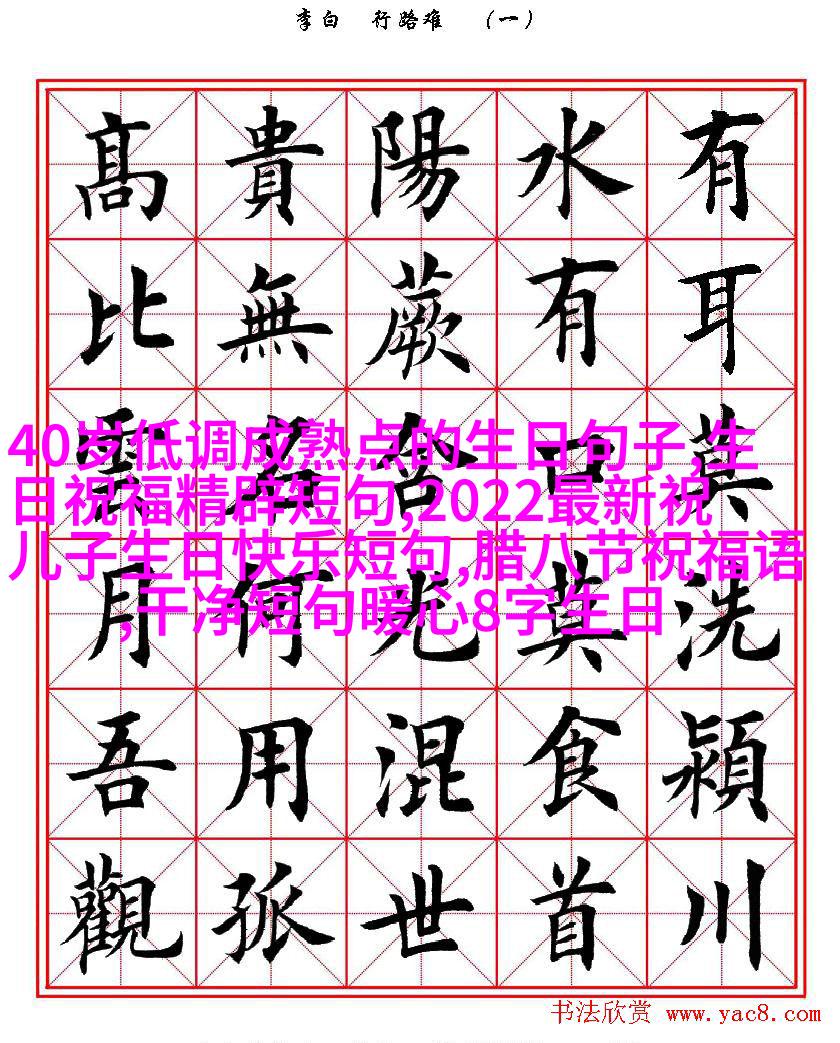 李白 行路难 （一）
有耳莫洗潁川
水有口莫食首
陽蕨含光混世
貴無名何用孤
髙比雲月吾觀
40岁低调成熟点的生日句子,生
日祝福精辟短句,2022最新祝
儿子生日快乐短句,腊八节祝福语
,干净短句暖心8字生日
书法欣赏 www.yac8.com